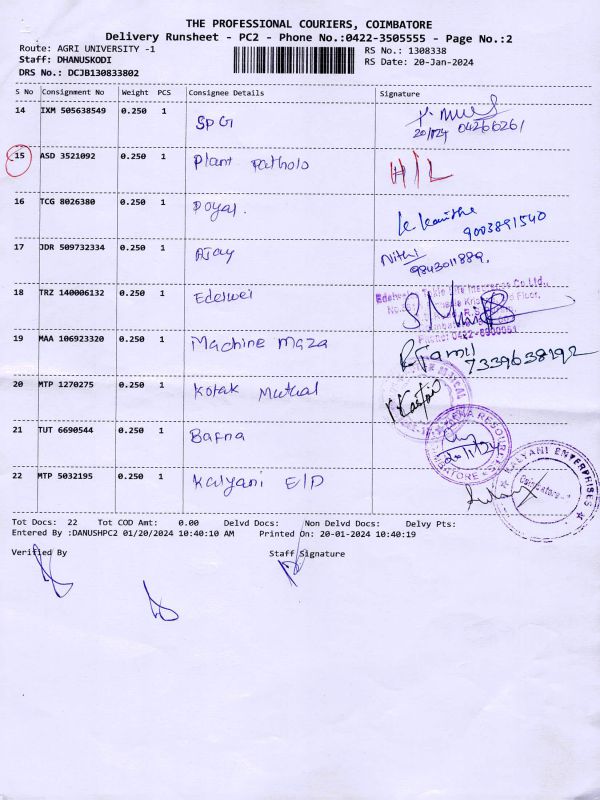 THE PROFESSIONAL COURIERS, COIMBATORE
Delivery Runsheet - PC2 - Phone No.:0422-3505555 - Page No.:2
Route: AGRI UNIVERSITY -1 RS No.: 1308338
Staff: DHANUSKODI RS Date: 20-Jan-2024
DRS No.: DCJB130833802
S No Consignment No Weight PCS Consignee Details Signature
14 IXM 505638549 0.250 1 SPG
20/1/24
15 ASD 3521092 0.250 1 Plant Patholo H/L
16 TCG 8026380 0.250 1 Doyal. 9003891540
17 JDR 509732334 0.250 1 Ajay Nithi
9843011889.
18 TRZ 140006132 0.250 1 Edelwei
19 MAA 106923320 0.250 1 Machine Maza 7339638192
20 MTP 1270275 0.250 1 Kotak Mutual
21 TUT 6690544 0.250 1 Bafna 20/1/24
22 MTP 5032195 0.250 1 Kalyani E/P KALYANI ENTERPRISES
Tot Docs: 22 Tot COD Amt: 0.00 Delvd Docs: Non Delvd Docs: Delvy Pts:
Entered By :DANUSHPC2 01/20/2024 10:40:10 AM Printed On: 20-01-2024 10:40:19
Verified By Staff Signature